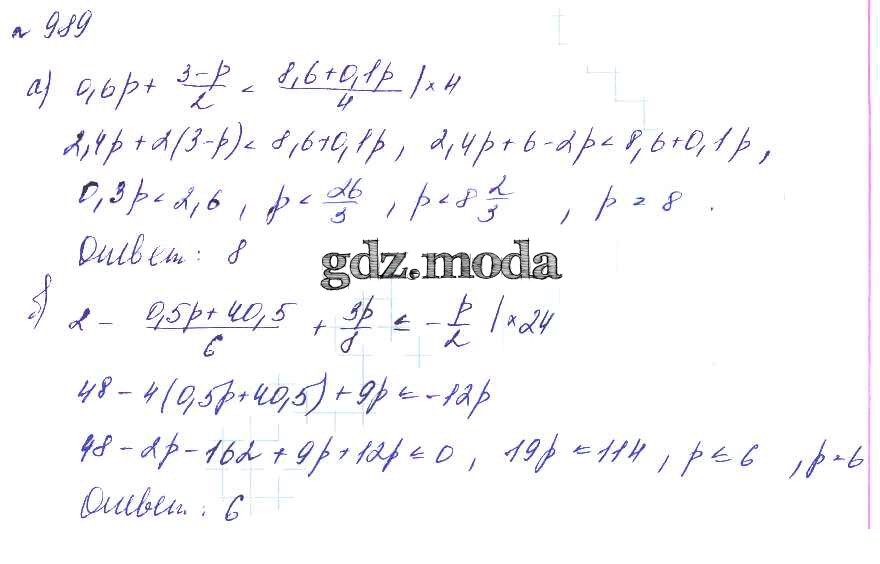 № 989
а) 0,6p + (3-p)/2 < (8,6+0,1p)/4 | × 4
2,4p + 2(3-p) < 8,6+0,1p, 2,4p + 6 - 2p < 8,6 + 0,1p,
0,3p < 2,6, p < 26/3, p < 8 2/3, p = 8.
Ответ: 8
gdz.moda
б) 2 - (0,5p+40,5)/6 + 3p/8 ≤ -p/2 | × 24
48 - 4(0,5p+40,5) + 9p ≤ -12p
48 - 2p - 162 + 9p + 12p ≤ 0, 19p ≤ 114, p ≤ 6, p = 6
Ответ: 6